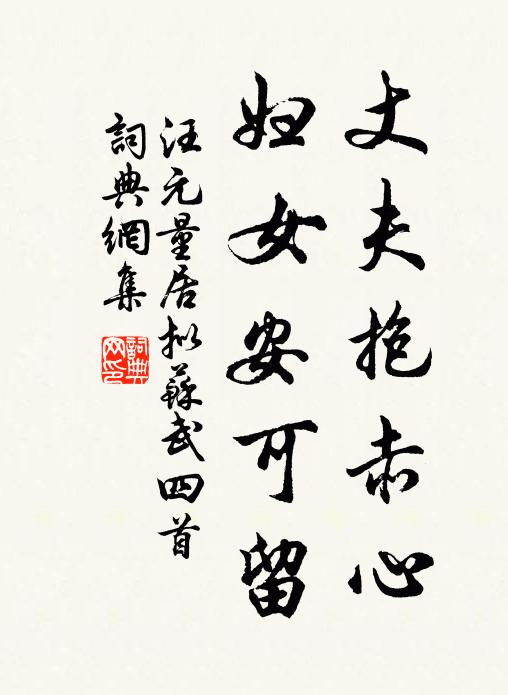 丈夫抱赤心
妇女安可留
汪元量居拟蘇武四首
詞典網集
詞典网印